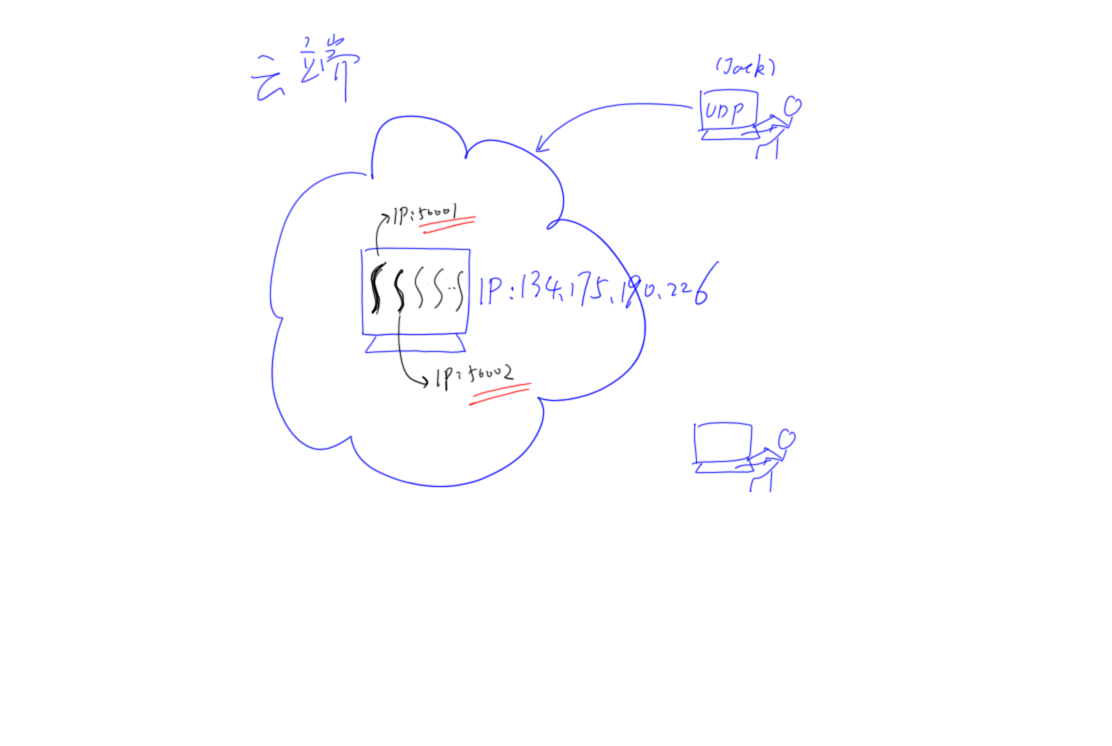 云端
(Jack)
UDP
IP:50001
IP:134.175.190.226
IP:50002